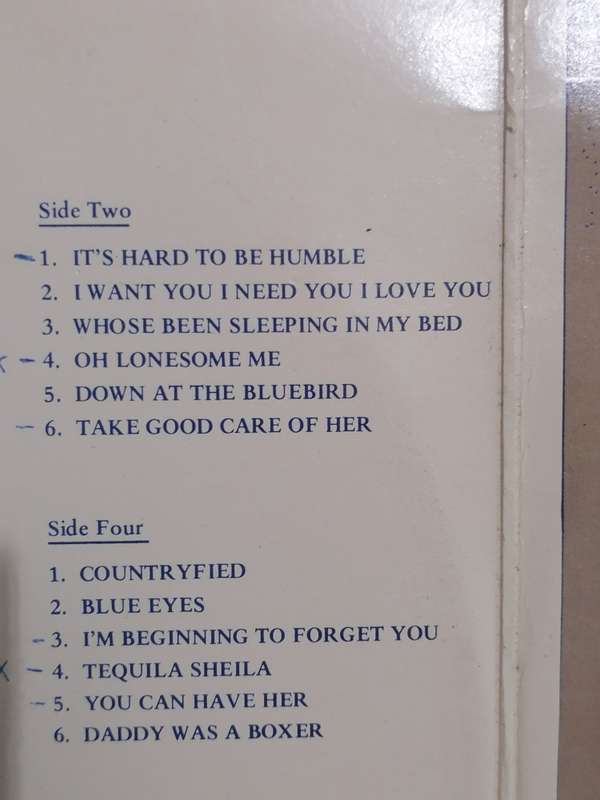 Side Two
1. IT'S HARD TO BE HUMBLE
2. I WANT YOU I NEED YOU I LOVE YOU
3. WHOSE BEEN SLEEPING IN MY BED
4. OH LONESOME ME
5. DOWN AT THE BLUEBIRD
6. TAKE GOOD CARE OF HER
Side Four
1. COUNTRYFIED
2. BLUE EYES
3. I'M BEGINNING TO FORGET YOU
4. TEQUILA SHEILA
5. YOU CAN HAVE HER
6. DADDY WAS A BOXER